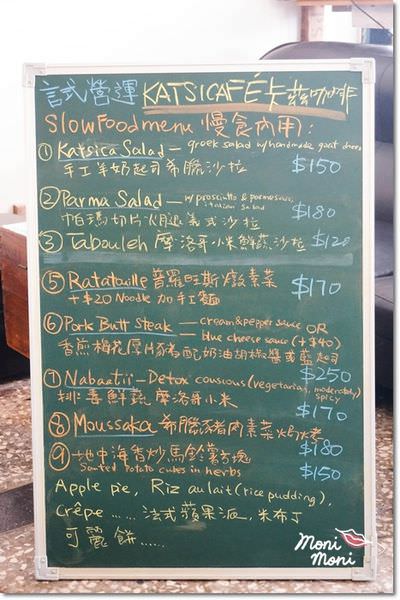 試營運 KATSICAFÉ 卡茲咖啡
Slow Food menu 慢食內用:
① Katsica Salad — greek salad w/ handmade goat cheese
手工羊奶起司希臘沙拉 $150
② Parma Salad — w/ prosciutto & parmesan, italian salad
帕瑪切片火腿義式沙拉 $180
③ Tabouleh 摩洛哥小米鮮蔬沙拉 $120
⑤ Ratatouille 普羅旺斯燉素菜 $170
+$20 Noodle 加手工麵
⑥ Pork Butt Steak — cream & pepper sauce OR
blue cheese sauce (+$40)
香煎梅花厚片豬排配奶油胡椒醬或藍起司
$250
⑦ Nabaatii - Detox couscous (vegetarian, moderately spicy)
排毒鮮蔬摩洛哥小米 $170
⑧ Moussaka 希臘豬肉素菜焗烤 $180
⑨ 地中海香炒馬鈴薯方塊
Sauted Potato cubes in herbs $150
Apple pie, Riz au lait (rice pudding),
crêpe ...... 法式蘋果派, 米布丁
可麗餅 ......
Moni
Moni